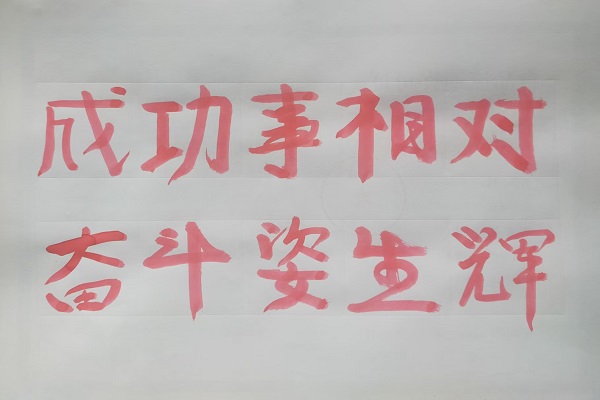 成功事相对
奋斗姿生辉